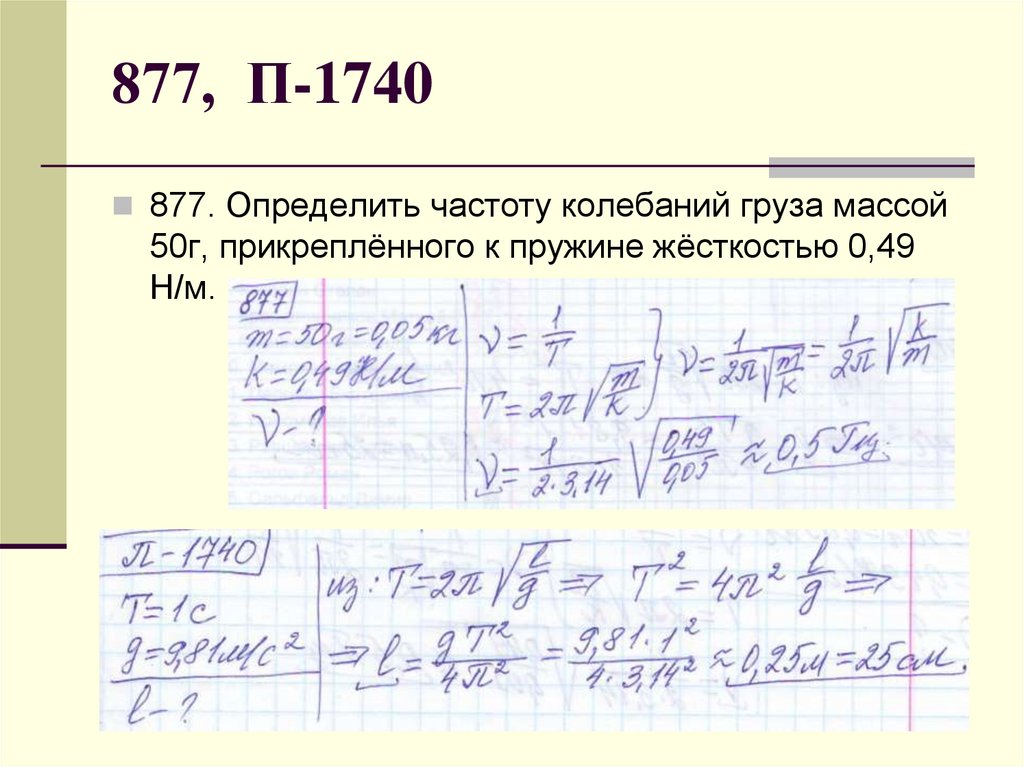 877, П-1740
877. Определить частоту колебаний груза массой
50г, прикреплённого к пружине жёсткостью 0,49
Н/м.
877
m=50г=0,05кг
K=0,49Н/м
ν-?
ν = 1/T
T = 2π√(m/k)
} ν = 1/(2π√(m/k)) = 1/(2π) √(k/m)
ν = 1/(2·3,14) √(0,49/0,05) ≈ 0,5 Гц.
П-1740
T=1с
g=9,81м/с²
l-?
из: T=2π√(l/g) ⇒ T² = 4π² l/g ⇒
⇒ l = gT²/4π² = 9,81·1²/4·3,14² ≈ 0,25м = 25см.